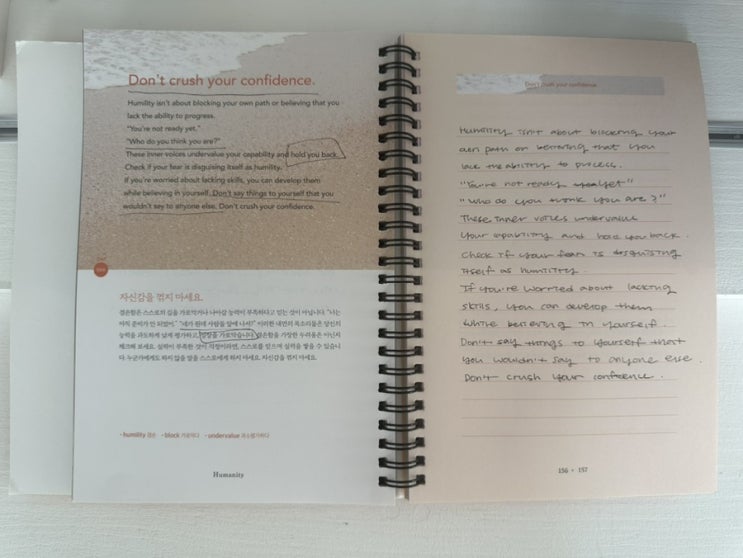 Don't crush your confidence.
Humility isn't about blocking your own path or believing that you
lack the ability to progress.
"You're not ready yet."
"Who do you think you are?"
These inner voices undervalue your capability and hold you back.
Check if your fear is disguising itself as humility.
If you're worried about lacking skills, you can develop them
while believing in yourself. Don't say things to yourself that you
wouldn't say to anyone else. Don't crush your confidence.
자신감을 꺾지 마세요.
겸손함은 스스로의 길을 가로막거나 나아갈 능력이 부족하다고 믿는 것이 아닙니다. "너는
아직 준비가 안 되었어." "네가 뭔데 사람들 앞에 나서?" 이러한 내면의 목소리들은 당신의
능력을 과도하게 낮게 평가하고 성장을 가로막습니다. 겸손함을 가장한 두려움은 아닌지
체크해 보세요. 실력이 부족한 것이 걱정이라면, 스스로를 믿으며 실력을 쌓을 수 있습니
다. 누군가에게도 하지 않을 말을 스스로에게 하지 마세요. 자신감을 꺾지 마세요.
• humility 겸손 • block 가로막다 • undervalue 과소평가하다
Humanity
Don't crush your confidence.
Humility isn't about blocking your
own path or believing that you
lack the ability to process.
"You're not ready yet"
"Who do you think you are?"
These inner voices undervalue
your capability and hold you back.
Check if your fear is disguising
itself as humility.
If you're worried about lacking
skills, you can develop them
while believing in yourself.
Don't say things to yourself that
you wouldn't say to anyone else.
Don't crush your confence.
156 • 157